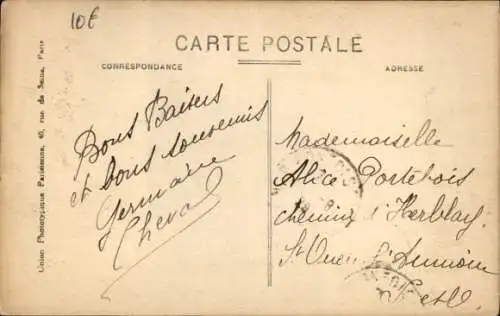 10€
CARTE POSTALE
CORRESPONDANCE
ADRESSE
Union Phototypique Parisienne, 40, rue de Seine, Paris
Bons Baisers
et bons souvenirs
Germaine
Cheval
Mademoiselle
Alice Portebois
chemin d'Herblay
St Ouen l'Aumône
S et O